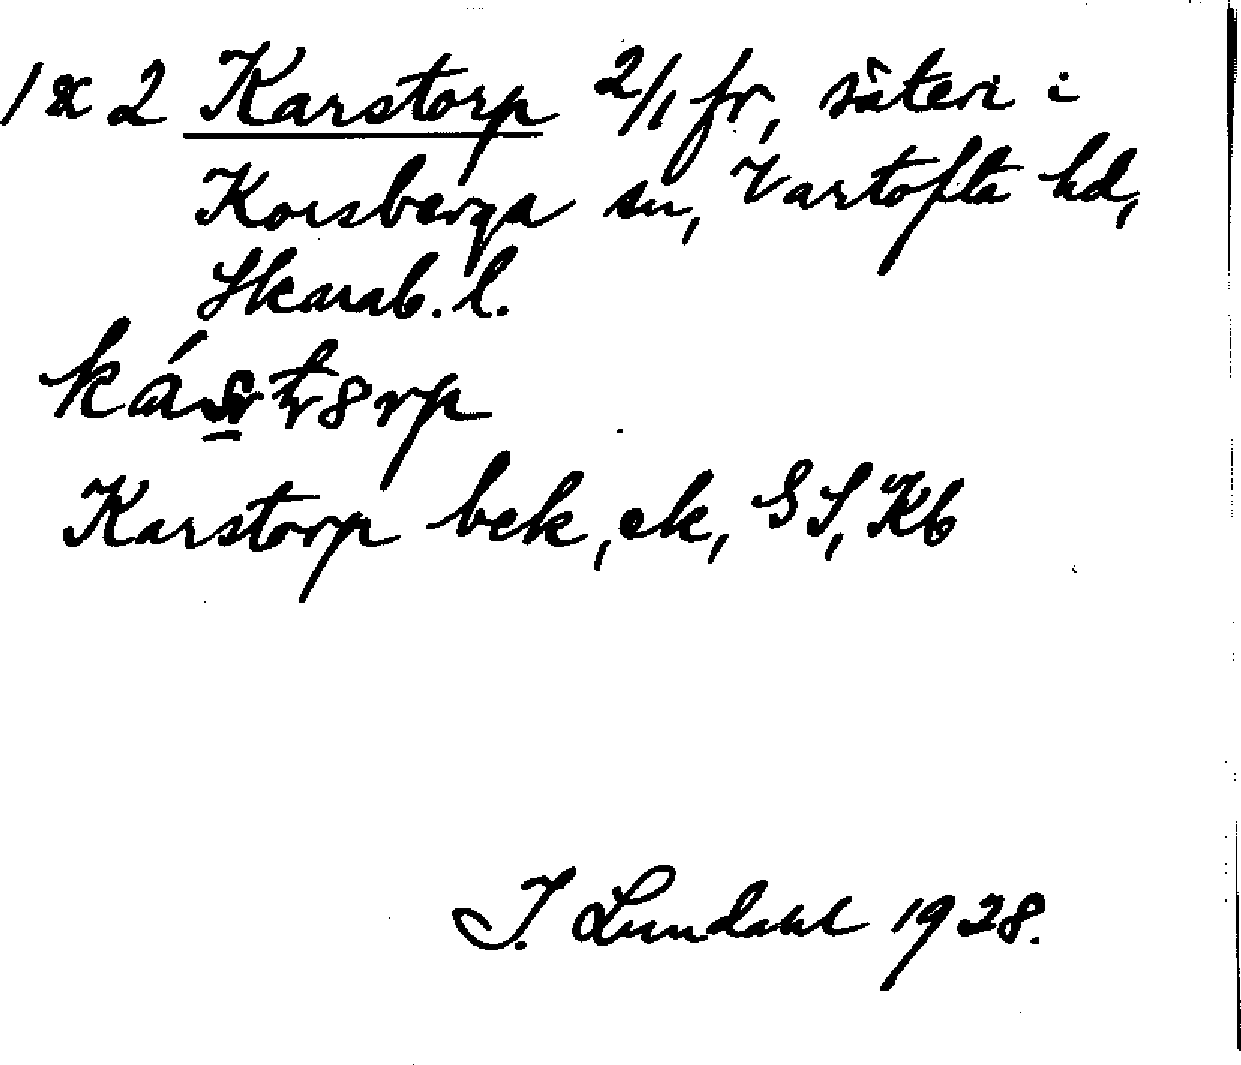 1 & 2 Karstorp 2/1 fr, säteri i
Korsberga sn, Vartofta hd,
Skarab. l.
Karstorp bek, ek, GS, Kb
I. Lundahl 1928.